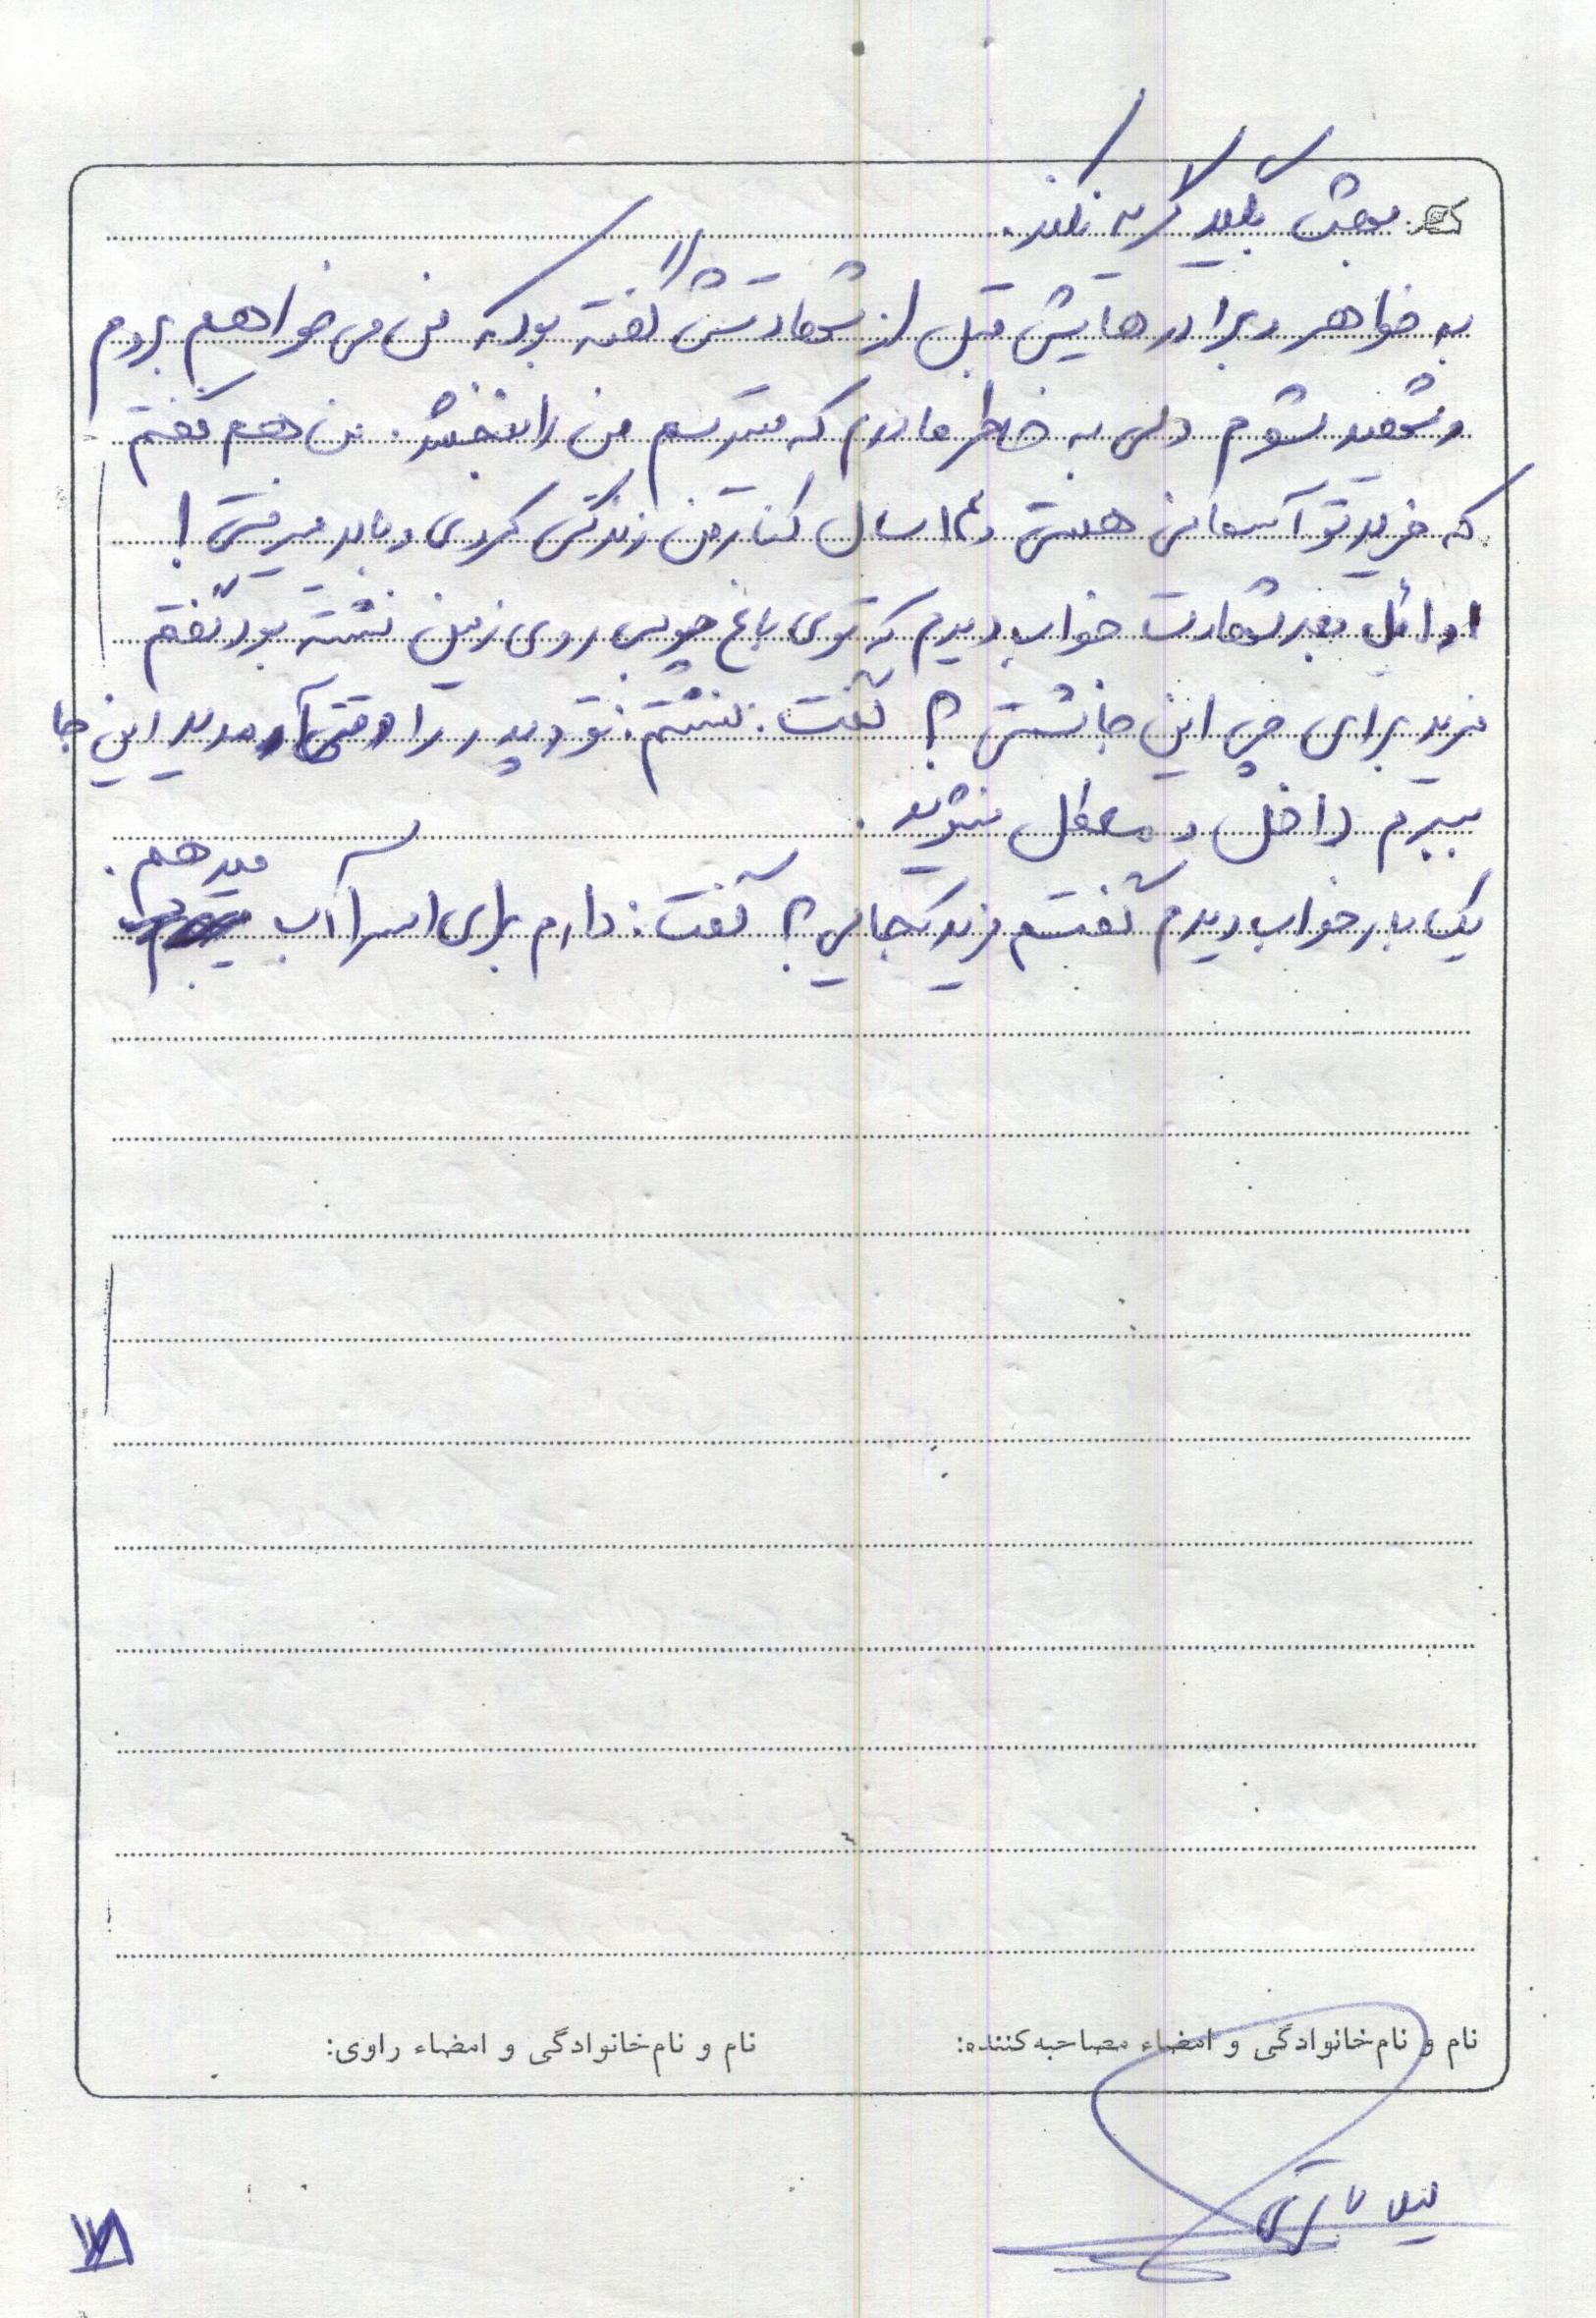 بهش بگویید گریه نکند.
به خواهر و برادرهایش قبل از شهادتش گفته بود که من می خواهم بروم
و شهید شوم ولی به خاطر مادرم که میترسم من را نبخشد. من هم گفتم
که فرید تو آسمانی هستی و ۱۴ سال کنار من زندگی کردی و باید میرفتی!
اوائل بعد شهادت خواب دیدم که توی باغ چوبی روی زمین نشسته بود گفتم
فرید برای چی این جا نشستی؟ گفت: نشستم: تو و پدر را وقتی آمدید این جا
ببرم داخل و معطل نشوید.
یک بار خواب دیدم گفتم فرید کجایی؟ گفت: دارم برای اسرا آب میدهم.
نام و نام خانوادگی و امضاء مصاحبه کننده:
نام و نام خانوادگی و امضاء راوی: